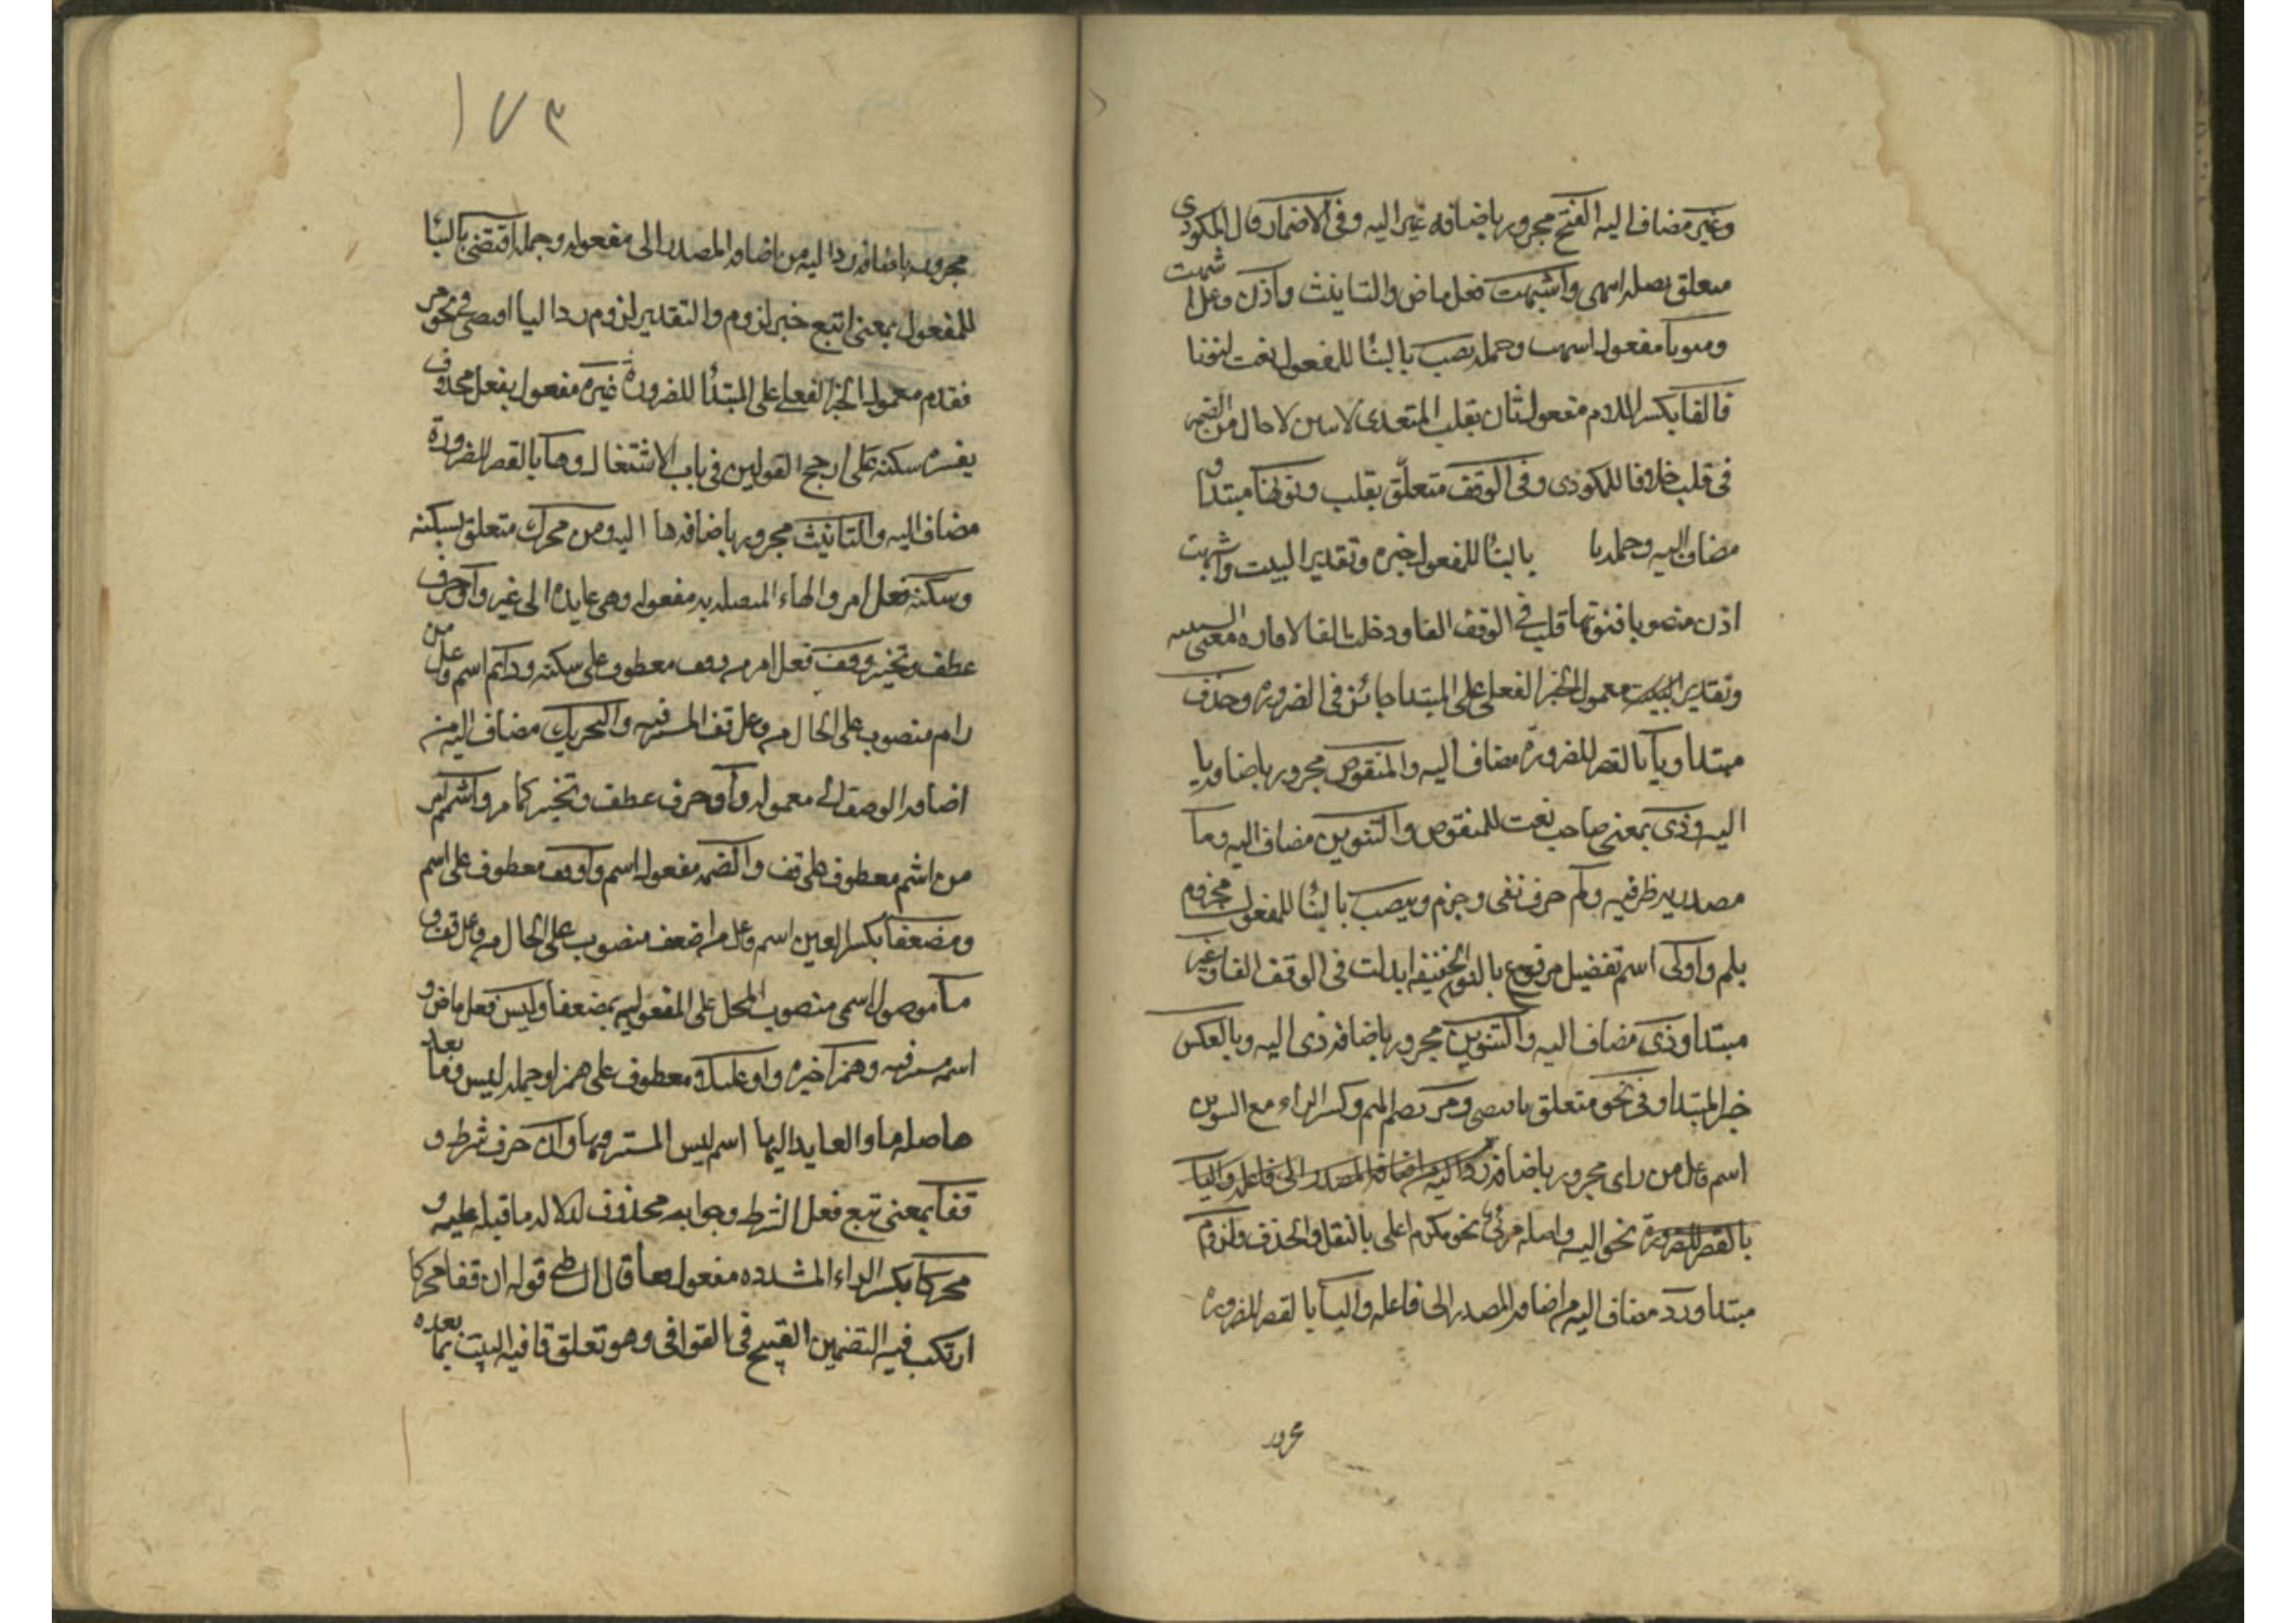 وغير مضاف اليه الفتح مجرور باضافه غير اليه وفي الاضمار قال المكودي
متعلق بصله اسمي واشبهت فعل ماض والتانيث واذن فاعل اشبهت
ومنونا مفعول اشبهت وجمله نصب بالبنا للمفعول نعت لنونا
فالفا بكسر اللام مفعول ثان بقلب المتعدي لاثنين لا حال من الضمير
في قلب خلافا للمكودي وفي الوقف متعلق بقلب ونونها مبتدا و
مضاف اليه وجمله با بالبنا للمفعول خبره وتقدير البيت واشبهت
اذن منصوبا فنونها قلب في الوقف الفا ودخلت الفا لافاده معنى السببيه
وتقدير البيت معمول الخبر الفعلي على المبتدا جائز في الضروره وحذف
مبتدا ويا بالقصر للضرورة مضاف اليه والمنقوص مجرور باضافه يا
اليه وذي بمعنى صاحب نعت للمنقوص والتنوين مضاف اليه وما
مصدريه ظرفيه ولم حرف نفي وجزم وينصب بالبنا للمفعول مجزوم
بلم واولى اسم تفضيل مرفوع بالنون الخفيفه ابدلت في الوقف الفا وغير
مبتدا وذي مضاف اليه والتنوين مجرور باضافه ذي اليه وبالعكس
خبر المبتدا وفي نحو متعلق باقتضي ومر بضم الميم وكسر الراء مع التنوين
اسم فاعل من راى مجرور باضافه رد اليه من اضافه المصدر الى فاعله واليا
بالقصر للضرورة نحو اليه واصله مرئي نحو مكرم اعلى بالنقل والحذف ولزوم
مبتدا ورد مضاف اليه من اضافه المصدر الى فاعله واليا بالقصر للضروره
مجرور
١٧٣
مجرور باضافه ردا اليه من اضافه المصدر الى مفعوله وجمله اقتضي بالبنا
للمفعول بمعنى اتبع خبر لزوم والتقدير لزوم رد اليا اقتضي في نحو مر
فقدم معمول الخبر الفعلي على المبتدا للضرورة غيره مفعول بفعل محذوف
يفسره سكنه على ارجح القولين في باب الاشتغال وها بالقصر للضرورة
مضاف اليه والتانيث مجرور باضافه ها اليه ومن محرك متعلق بسكنه
وسكنه فعل امر والهاء المتصله به مفعوله وهي عايده الى غير واو حرف
عطف وتخيير وقف فعل امر من وقف معطوف على سكنه ودائم اسم فاعل من
رام منصوب على الحال من فاعل قف المستتر فيه والتحريك مضاف اليه من
اضافه الوصف الى معموله واو حرف عطف وتخيير كما مر واشمم امر
من اشم معطوف على قف والضمه مفعول اشمم واو قف معطوف على اشمم
ومضعفا بكسر العين اسم فاعل من اضعف منصوب على الحال من فاعل قف و
ما موصول اسمي منصوب المحل على المفعوليه بمضعفا وليس فعل ماض و
اسمه مستتر فيه وهمزا خبره واو عليلا معطوف على همزا وجمله ليس وما بعد
ها صله ما والعايد اليها اسم ليس المستتر فيها وان حرف شرط و
قفا بمعنى تبع فعل الشرط وجوابه محذوف لدلاله ما قبله عليه و
محركا بكسر الراء المشدده مفعول قفا قال الشاطبي قوله ان قفا محركا
ارتكب فيه التضمين القبيح في القوافي وهو تعلق قافيه البيت بما بعده